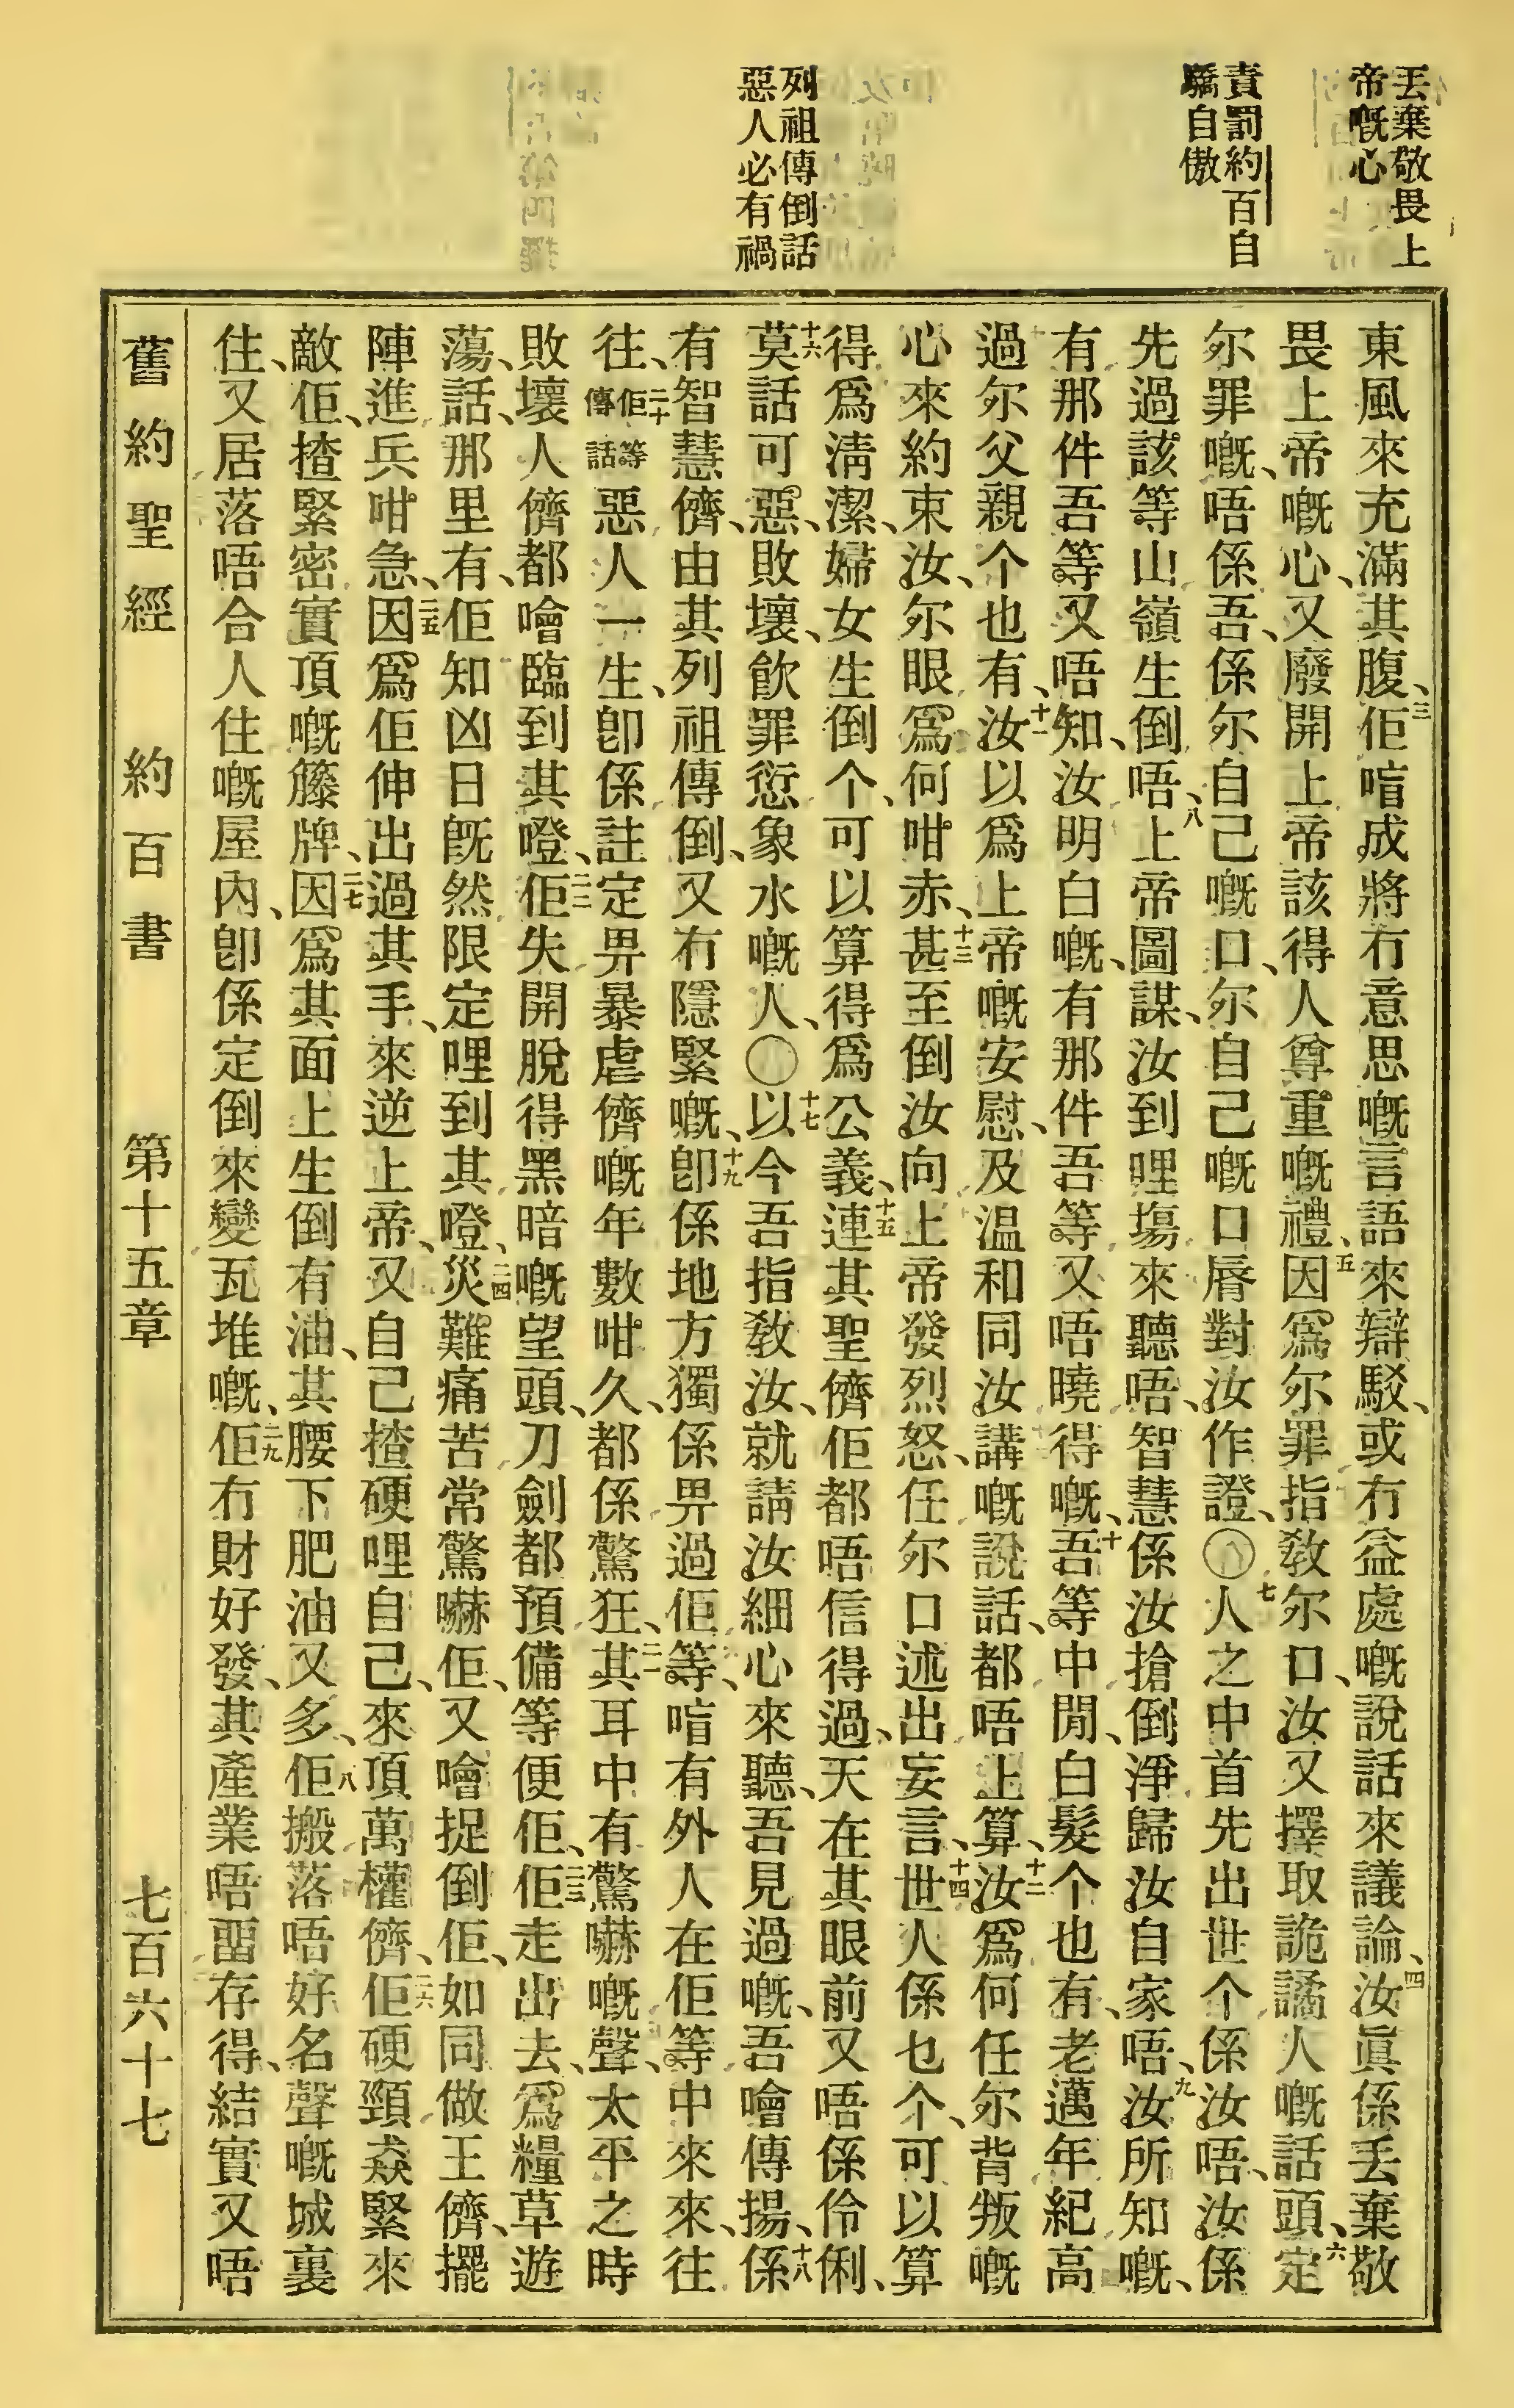 丟棄敬畏上
帝嘅心
責罰約百自
驕自傲
列祖傳倒話
惡人必有禍
東風來充滿其腹、三佢喧成將冇意思嘅言語來辯駁、或冇益處嘅說話來議論、四汝眞係丟棄敬
畏上帝嘅心、又廢開上帝該得人尊重嘅禮、五因爲尔罪指敎尔口、汝又擇取詭譎人嘅話頭、六定
尔罪嘅、唔係吾、係尔自己嘅口、尔自己嘅口脣對汝作證、〇七人之中首先出世个係汝唔、汝係
先過該等山嶺生倒唔、八上帝圖謀、汝到哩塲來聽唔、智慧係汝搶倒淨歸汝自家唔、九汝所知嘅、
有那件吾等又唔知、汝明白嘅、有那件吾等又唔曉得嘅、十吾等中閒、白髮个也有、老邁年紀高
過尔父親个也有、十一汝以爲上帝嘅安慰、及温和同汝講嘅說話、都唔上算、十二汝爲何任尔背叛嘅
心來約束汝、尔眼爲何咁赤、十三甚至倒汝向上帝發烈怒、任尔口述出妄言、十四世人係乜个、可以算
得爲淸潔、婦女生倒个、可以算得爲公義、十五連其聖儕佢都唔信得過、天在其眼前又唔係伶俐、
十六莫話可惡、敗壞、飮罪愆象水嘅人、〇十七以今吾指敎汝、就請汝細心來聽、吾見過嘅、吾噲傳揚、十八係
有智慧儕、由其列祖傳倒、又冇隱緊嘅、十九卽係地方獨係畀過佢等、喧有外人在佢等中來來、往
往、二十佢等傳話惡人一生、卽係註定畀暴虐儕嘅年數咁久、都係驚狂、二一其耳中有驚嚇嘅聲、太平之時
敗壞人儕都噲臨到其噔、二二佢失開脫得黑暗嘅望頭、刀劍都預備等便佢、二三佢走出去、爲糧草遊
蕩、話、那里有、佢知凶日旣然限定哩到其噔、二四災難痛苦常驚嚇佢、又噲捉倒佢、如同做王儕、擺
陣進兵咁急、二五因爲佢伸出過其手、來逆上帝、又自己揸硬哩自己、來頂萬權儕、二六佢硬頸猋緊來
敵佢、揸緊密實頂嘅籐牌、二七因爲其面上生倒有油、其腰下肥油又多、八佢搬落唔好名聲嘅城裏
住、又居落唔合人住嘅屋內、卽係定倒來變瓦堆嘅、二九佢冇財好發、其產業唔畱存得、結實又唔
舊約聖經　約百書　第十五章　七百六十七